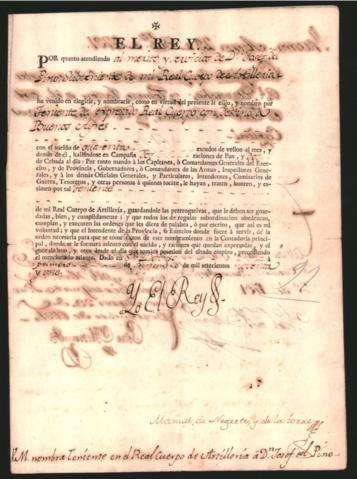 EL REY.
POR quanto atendiendo al merito, y servicios de Dn. Josef del
Pino Subteniente de mi Real Cuerpo de Artilleria
he venido en elegirle, y nombrarle, como en virtud del presente le elijo, y nombro por
Teniente de expresado Real Cuerpo con destino a
Buenos Aires
con el sueldo de quarenta escudos de vellon al mes, y
demás de él, hallandose en Campaña raciones de Pan, y
de Cebada al dia: Por tanto mando à los Capitanes, ò Comandantes Generales del Exercito,
y de Provincia, Gobernadores, ò Comandantes de las Armas, Inspectores Generales,
y à los demás Oficiales Generales, y Particulares, Intendentes, Comisarios de
Guerra, Tesoreros, y otras personas à quienes tocàre, le hayan, traten, honren, y
por tal Teniente
de mi Real Cuerpo de Artilleria, guardandole las prerrogativas, que le deben ser guardadas,
bien, y cumplidamente: y que todos los de regular subordinacion obedezcan,
cumplan, y executen las ordenes que les diere de palabra, ò por escrito, que asi es mi
voluntad; y que el Intendente de la Provincia, ò Exercito donde fuere à servir, dé la
orden necesaria para que se tome razon de este nombramiento en la Contaduria principal,
donde se le formarà asiento con el sueldo, y raciones que quedan expresadas, y el
gozarà uno, y otro desde el dia que tomàre posesion del citado empleo, precediendo
el mencionado asiento. Dado en
de mil setecientos
Yo El Rey
Manuel de Negrete y de la Torre
S.M. nombra Teniente en el Real Cuerpo de Artilleria à Dn. Josef del Pino.